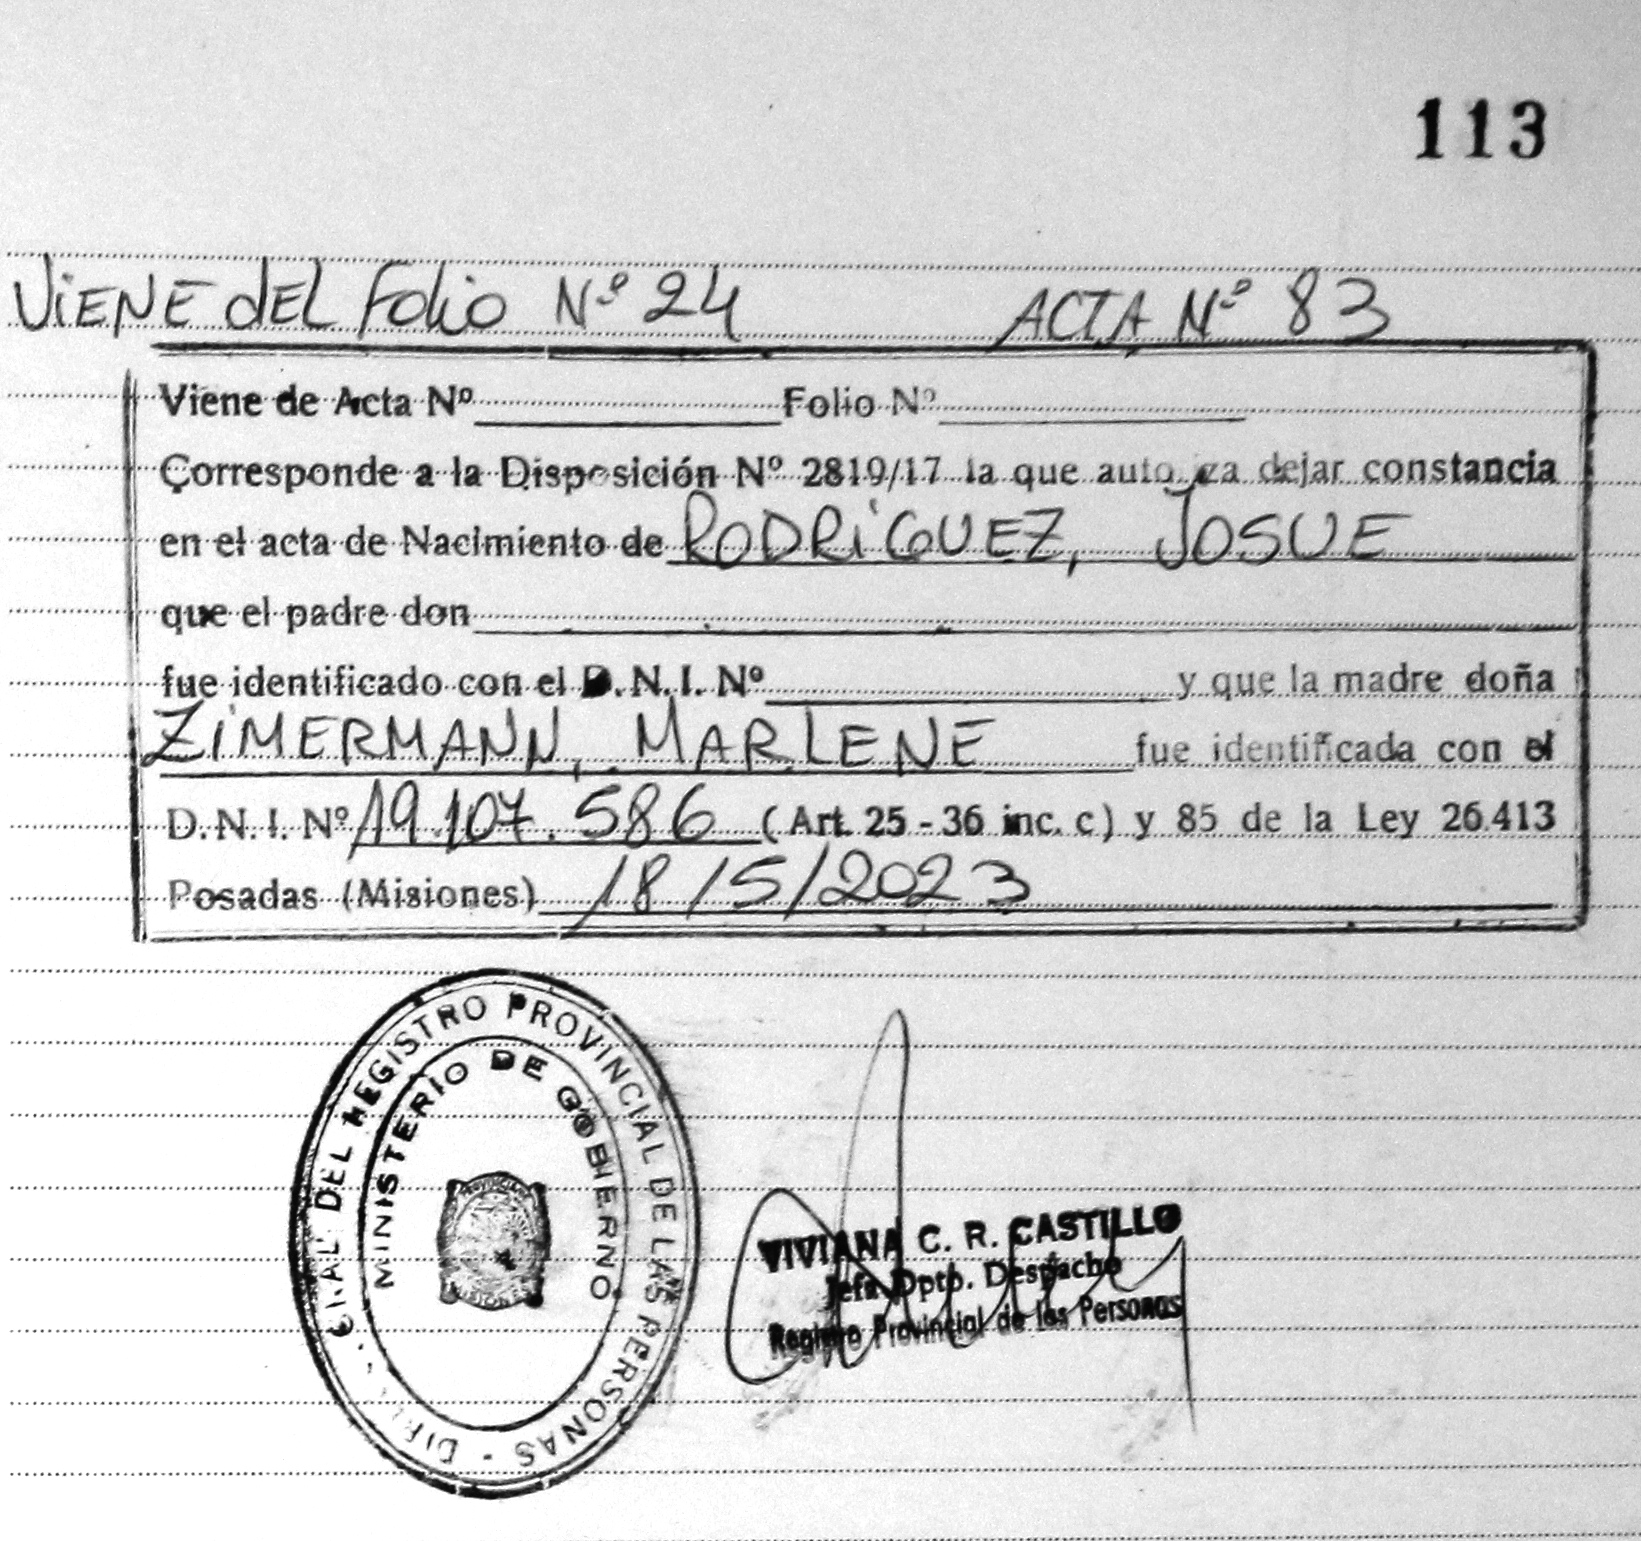 113
ViENE dEL Folio Nº 24 ACTA Nº 83
Viene de Acta Nº Folio Nº
Corresponde a la Disposición Nº 2819/17 la que auto iza dejar constancia
en el acta de Nacimiento de RODRiGUEZ, JOSUE
que el padre don
fue identificado con el D.N.I. Nº y que la madre doña
ZiMERMANN, MARLENE fue identificada con el
D.N.I. Nº 19.107.586 (Art. 25 - 36 inc. c) y 85 de la Ley 26.413
Posadas (Misiones) 18/5/2023
DEL REGISTRO PROVINCIAL DE LAS PERSONAS -
MINISTERIO DE GOBIERNO
MISIONES
VIVIANA C. R. CASTILLO
Jefa Dpto. Despacho
Registro Provincial de las Personas